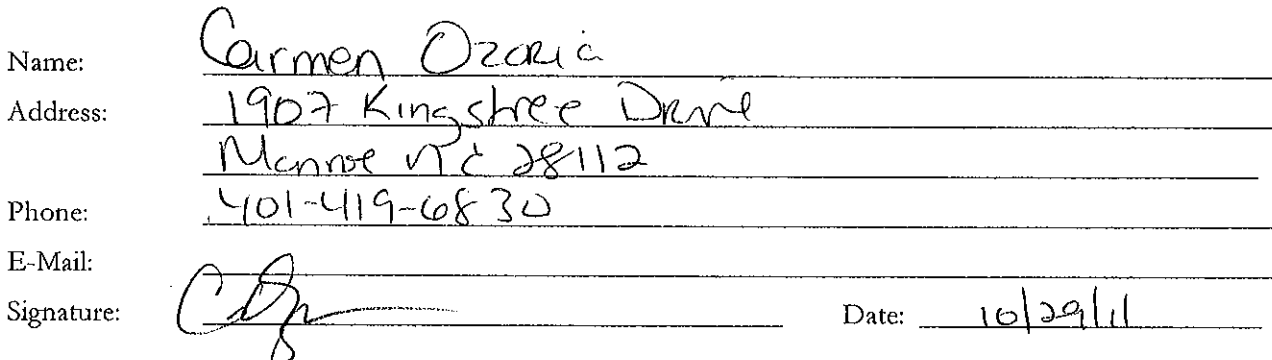 Name: Carmen Ozoria
Address: 1907 Kingstree Drive
Monroe NC 28112
Phone: 401-419-6830
E-Mail:
Signature:
Date: 10/29/11